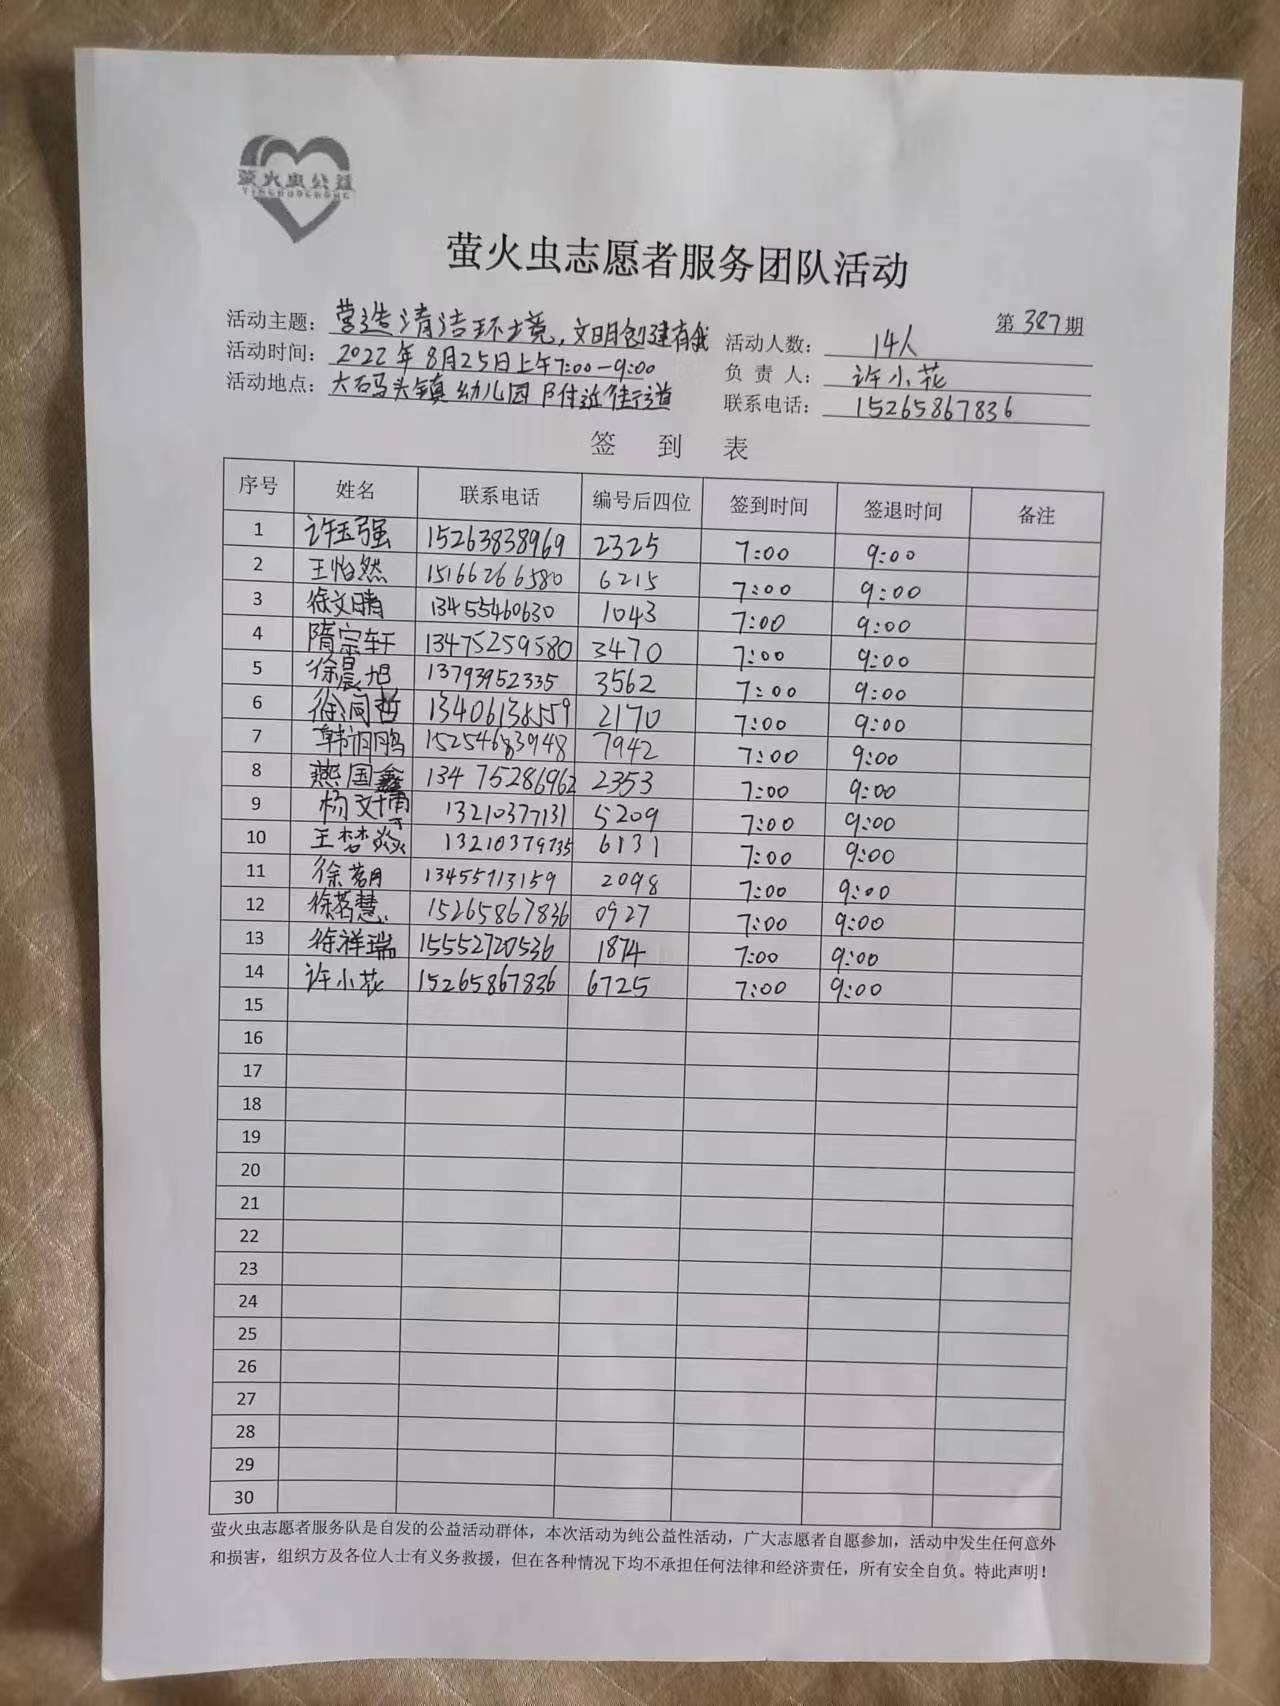 萤火虫公益
YINGHUOCHONG
萤火虫志愿者服务团队活动
第 387 期
活动主题: 营造清洁环境，文明创建有我
活动人数: 14人
活动时间: 2022年8月25日上午7:00—9:00
负 责 人: 许小花
活动地点: 大码头镇幼儿园附近街道
联系电话: 15265867836
签 到 表
序号 姓名 联系电话 编号后四位 签到时间 签退时间 备注
1 许玉强 15263838969 2325 7:00 9:00
2 王怡然 15166266580 6215 7:00 9:00
3 徐文晴 13455460630 1043 7:00 9:00
4 隋宗轩 13475259580 3470 7:00 9:00
5 徐晨旭 13793952335 3562 7:00 9:00
6 徐润哲 13406138559 2170 7:00 9:00
7 韩润鹏 15254683948 7942 7:00 9:00
8 燕国鑫 13475286962 2353 7:00 9:00
9 杨文 13210377131 5209 7:00 9:00
10 王梦焱 13210379735 6131 7:00 9:00
11 徐茗月 13455713159 2098 7:00 9:00
12 徐茗慧 15265867836 0927 7:00 9:00
13 徐祥瑞 15552720536 1874 7:00 9:00
14 许小花 15265867836 6725 7:00 9:00
15
16
17
18
19
20
21
22
23
24
25
26
27
28
29
30
萤火虫志愿者服务队是自发的公益活动群体，本次活动为纯公益性活动，广大志愿者自愿参加，活动中发生任何意外
和损害，组织方及各位人士有义务救援，但在各种情况下均不承担任何法律和经济责任，所有安全自负。特此声明！